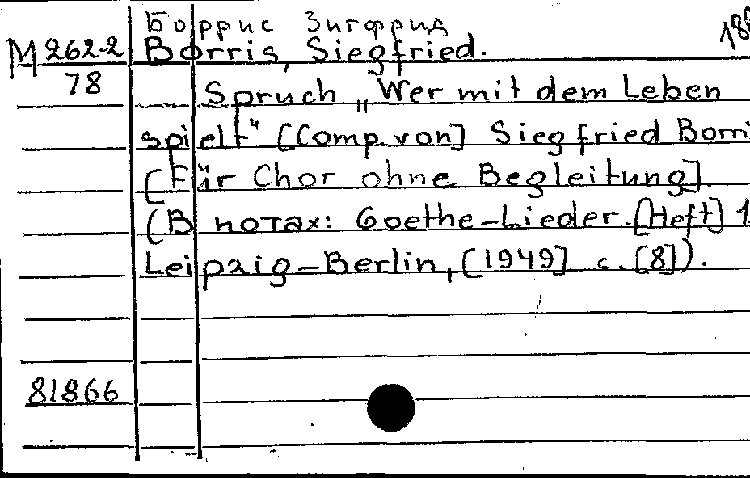 Боррис Зигфрид
М 262-2 Borris, Siegfried.
78 Spruch „Wer mit dem Leben
spielt" [Comp. von] Siegfried Borri
[Für Chor ohne Begleitung]
(В нотах: Goethe-Lieder. [Heft] 1
Leipzig-Berlin, [1949] с. [8]).
81866